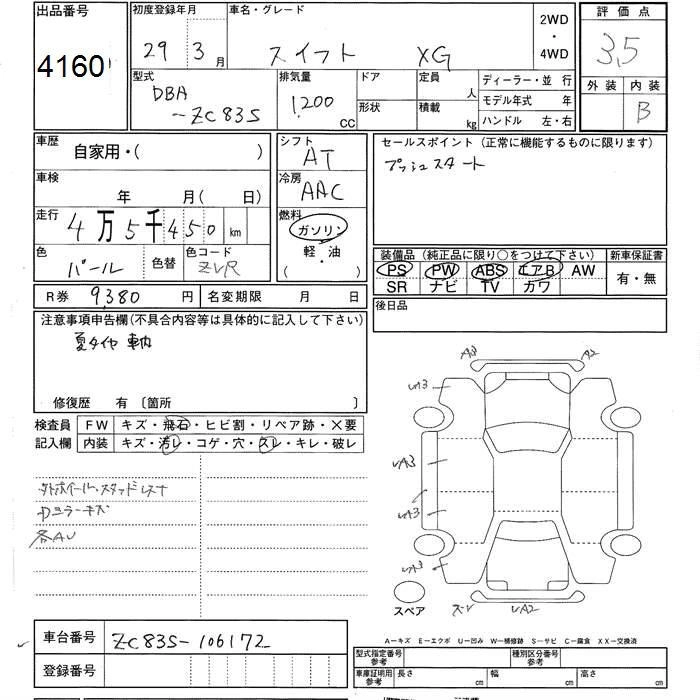 出品番号 初度登録年月 車名・グレード 2WD・4WD 評価点
4160 29 3月 スイフト XG 3.5
型式 排気量 ドア 定員 人 ディーラー・並行 外装 内装
DBA-ZC83S 1,200 CC 形状 積載 kg モデル年式 年 B
ハンドル 左・右
車歴 自家用・( ) シフト AT セールスポイント (正常に機能するものに限ります)
プッシュスタート
車検 年 月 ( 日) 冷房 AAC
走行 4万5千450km 燃料 ガソリン 軽・油 ( )
色 パール 色替 色コード ZVR
装備品 (純正品に限り○をつけて下さい) 新車保証書
PS PW ABS エアB AW 有・無
SR ナビ TV カワ
R券 9,380 円 名変期限 月 日 後日品
注意事項申告欄(不具合内容等は具体的に記入して下さい)
夏タイヤ 車内
修復歴 有 〔箇所 〕
検査員 FW キズ・飛石・ヒビ割・リペア跡・×要
記入欄 内装 キズ・汚レ・コゲ・穴・スレ・キレ・破レ
外ホイール・スタッドレス
Dミラーキズ
各AU
A2
A3
A3
A3
A3
スペア
A2
車台番号 ZC83S-106172
登録番号
A-キズ E-エクボ U-凹み W-補修跡 S-サビ C-腐食 XX-交換済
型式指定番号 参考 種別区分番号 参考
車庫証明用 参考 長さ cm 幅 cm 高さ cm